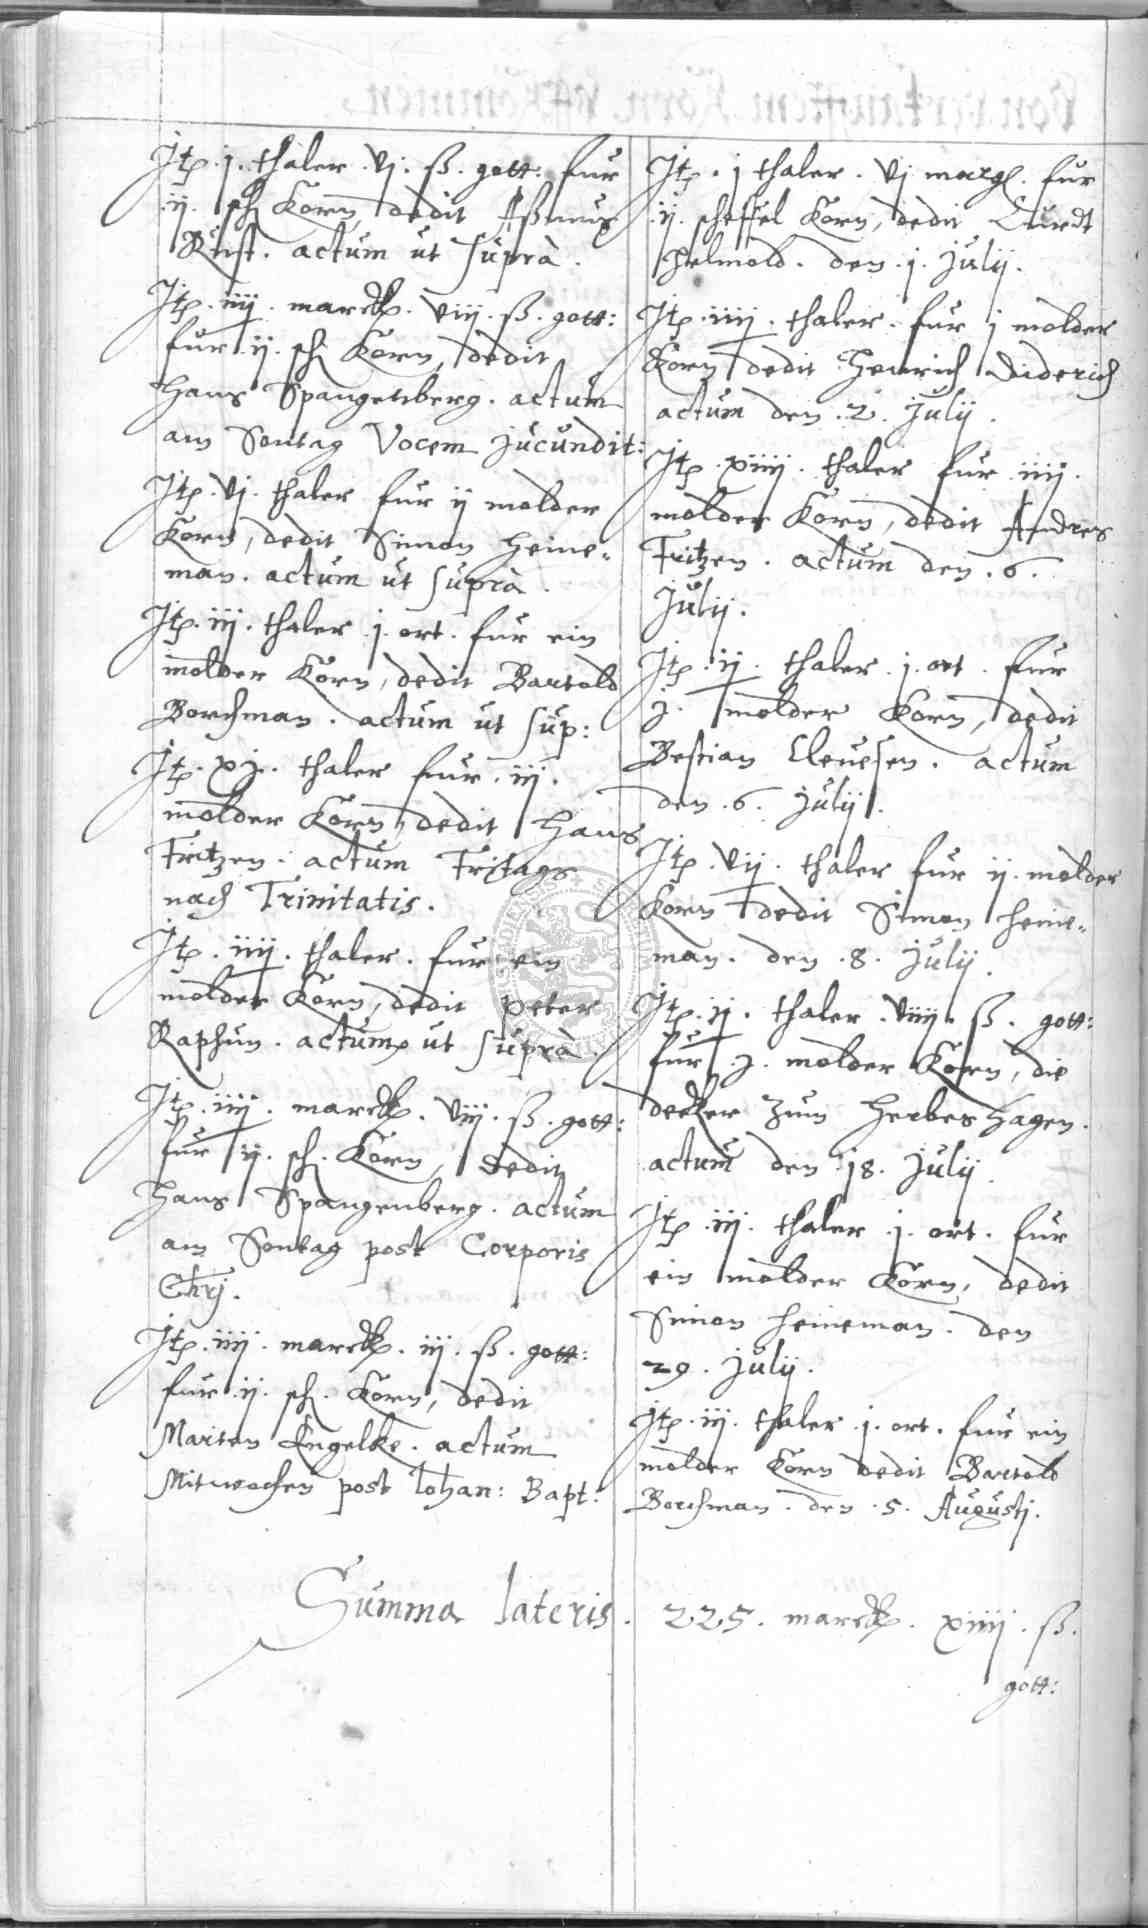 Itp. j. thaler. vj. ß. gott: fur
ij. sch Korn, dedit Aßmus
Rust. actum ut suprà.
Itp. iiij. marck. viij. ß. gott:
fur ij. sch Korn, dedit
Hans Spangenberg. actum
am Sontag Vocem jucundit:
Itp. vj. thaler fur ij molder
Korn, dedit Simon Heine-
man. actum ut suprà.
Itp. iij. thaler j. ort. fur ein
molder Korn, dedit Bartold
Borchman. actum ut sup:
Itp. xj. thaler fur. iij.
molder Korn, dedit Hans
Fritzen. actum Fritags
nach Trinitatis.
Itp. iiij. thaler. fur ein
molder Korn, dedit Peter
Raphun. actum ut suprà.
Itp. iiij. marck. viij. ß. gott:
fur ij. sch. Korn, dedit
Hans Spangenberg. actum
am Sontag post Corporis
Chrj.
Itp. iiij. marck. iij. ß. gott:
fur ij. sch. Korn, dedit
Marten Engelke. actum
Mitwochen post Johan: Bapt:
Itp. j thaler. vj marg. fur
ij. scheffel Korn, dedit Curdt
Helmold. den. j. Julij.
Itp. iiij. thaler. fur j molder
Korn dedit Henrich Diderich
actum den. 2. Julij.
Itp. xiiij. thaler fur iiij.
molder Korn, dedit Andres
Fritzen. actum den. 6.
Julij.
Itp. ij. thaler. j. ort. fur
j. molder Korn, dedit
Bestian Cleuesen. actum
den. 6. Julij.
Itp. vij. thaler fur ij. molder
Korn dedit Simon Heine-
man. den. 8. Julij.
Itp. ij. thaler. viiij. ß. gott:
fur. j. molder Korn, die
decker zum Herbershagen.
actum den. 18. Julij.
Itp. iij. thaler. j. ort. fur
ein molder Korn, dedit
Simon Heineman. den
29. Julij.
Itp. iij. thaler. j. ort. fur ein
molder Korn dedit Bartold
Borchman. den. 5. Augustj.
Summa lateris. 225. marck. xiiij. ß.
gott: